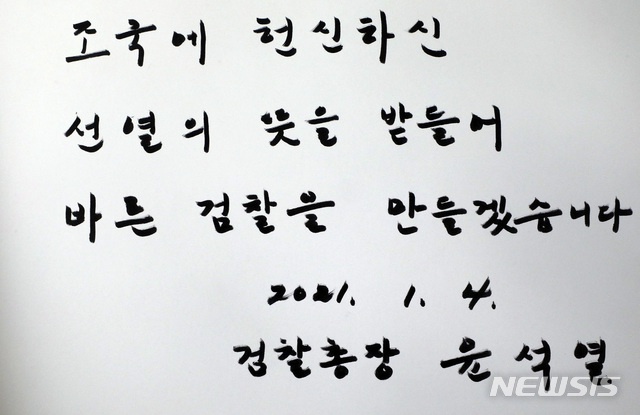 조국에 헌신하신
선열의 뜻을 받들어
바른 검찰을 만들겠습니다
2021. 1. 4.
검찰총장 윤석열
NEWSIS